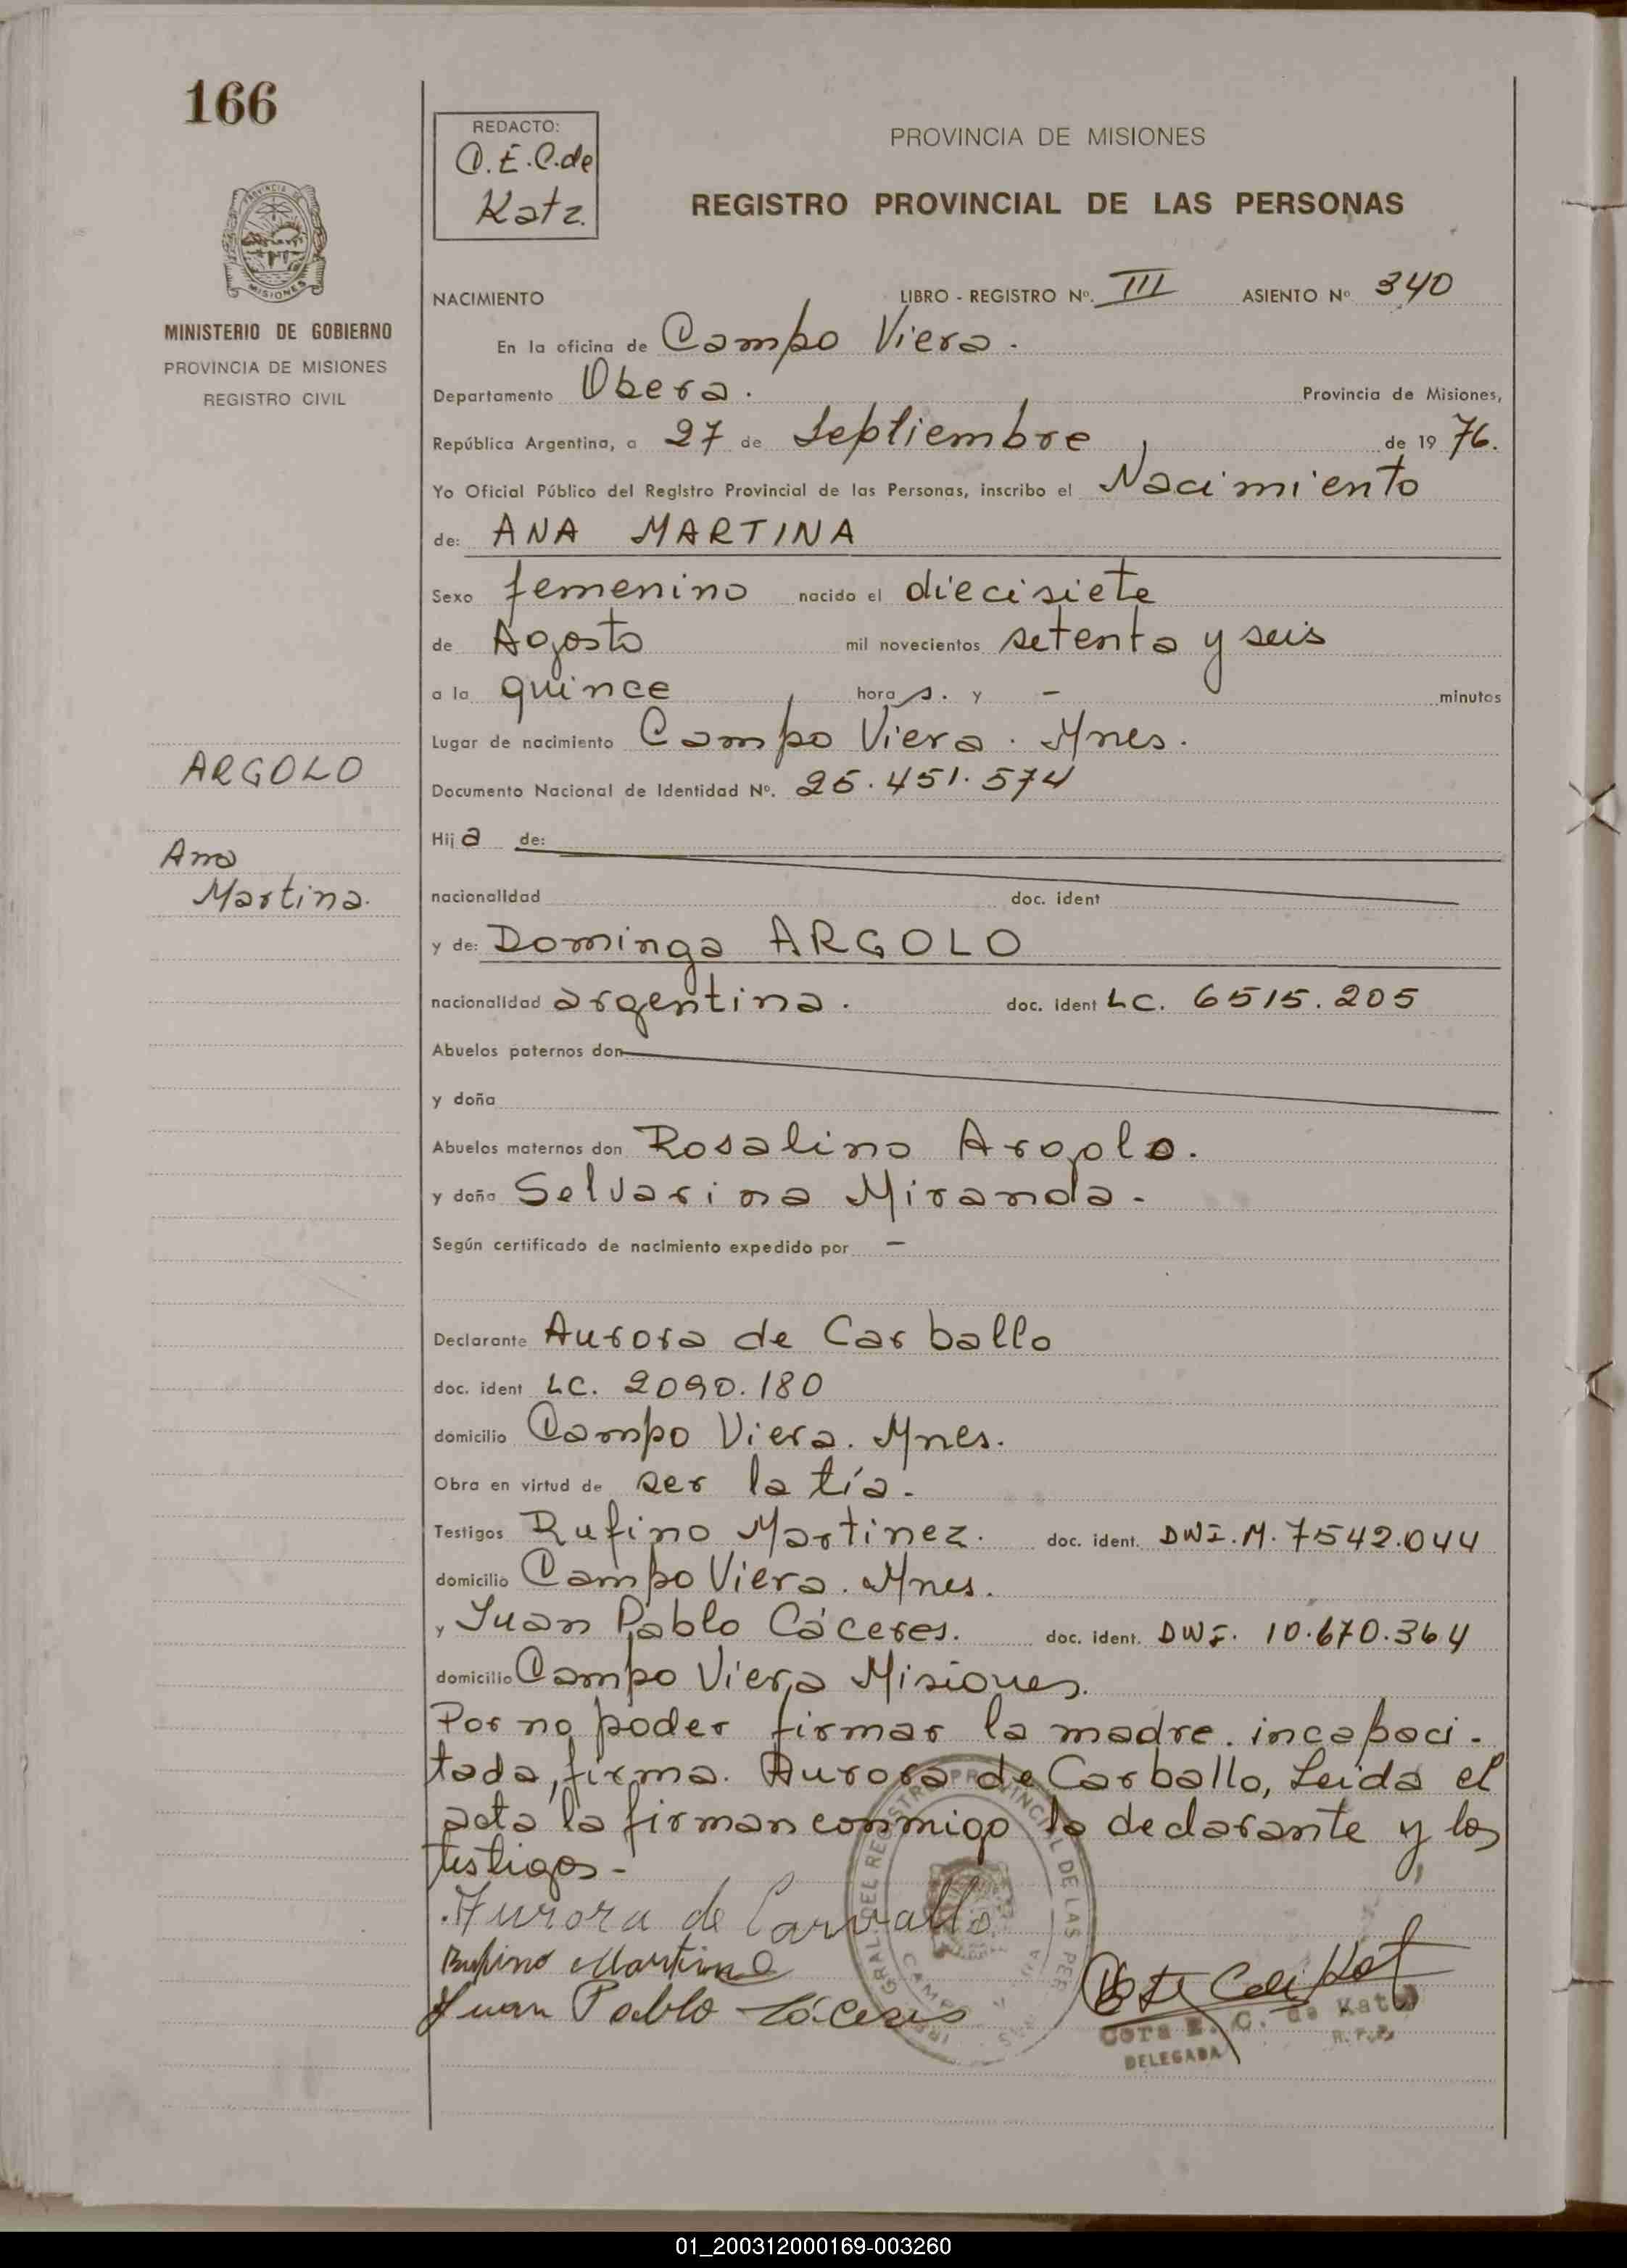 166
REDACTO:
C.E.C. de
Katz.
PROVINCIA DE MISIONES
REGISTRO PROVINCIAL DE LAS PERSONAS
PROVINCIA DE
MISIONES
MINISTERIO DE GOBIERNO
PROVINCIA DE MISIONES
REGISTRO CIVIL
NACIMIENTO LIBRO - REGISTRO Nº. III ASIENTO Nº 340
En la oficina de Campo Viera.
Departamento Obera. Provincia de Misiones,
República Argentina, a 27 de Septiembre de 19 76.
Yo Oficial Público del Registro Provincial de las Personas, inscribo el Nacimiento
de: ANA MARTINA
Sexo femenino nacido el diecisiete
de Agosto mil novecientos setenta y seis
a la quince hora s. y - minutos
Lugar de nacimiento Campo Viera. Mnes.
Documento Nacional de Identidad Nº. 25.451.574
ARGOLO
Ana
Martina.
Hij a de:
nacionalidad doc. ident
y de: Dominga ARGOLO
nacionalidad argentina. doc. ident LC. 6515.205
Abuelos paternos don
y doña
Abuelos maternos don Rosalino Argolo.
y doña Selvarina Miranda.
Según certificado de nacimiento expedido por -
Declarante Aurora de Carballo
doc. ident LC. 2090.180
domicilio Campo Viera. Mnes.
Obra en virtud de ser la tía.
Testigos Rufino Martinez. doc. ident. DNI.M. 7542.044
domicilio Campo Viera. Mnes.
y Juan Pablo Cáceres. doc. ident. DNI. 10.670.364
domicilio Campo Viera Misiones.
Por no poder firmar la madre. incapaci-
tada, firma. Aurora de Carballo, Leida el
acta la firman conmigo la declarante y los
testigos-
Aurora de Carvallo
Rufino Martine
Juan Pablo Cáceres
Cora E. C. de Katz
R.P.P.
DELEGADA
01_200312000169-003260